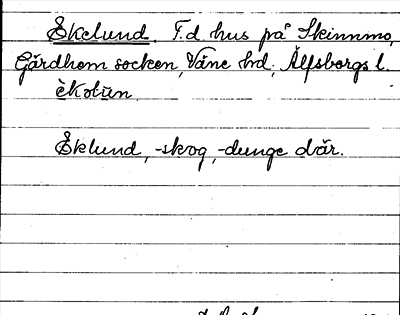 Ekelund. F.d. hus på Skinnmo,
Gärdhem socken, Väne hd, Älfsborgs l.
èkɷlɷn
Eklund, -skog, -dunge där.